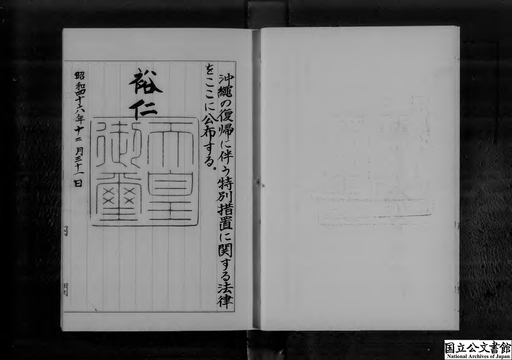 沖縄の復帰に伴う特別措置に関する法律
をここに公布する。
裕仁
天皇
御璽
昭和四十六年十二月三十一日
国立公文書館
National Archives of Japan